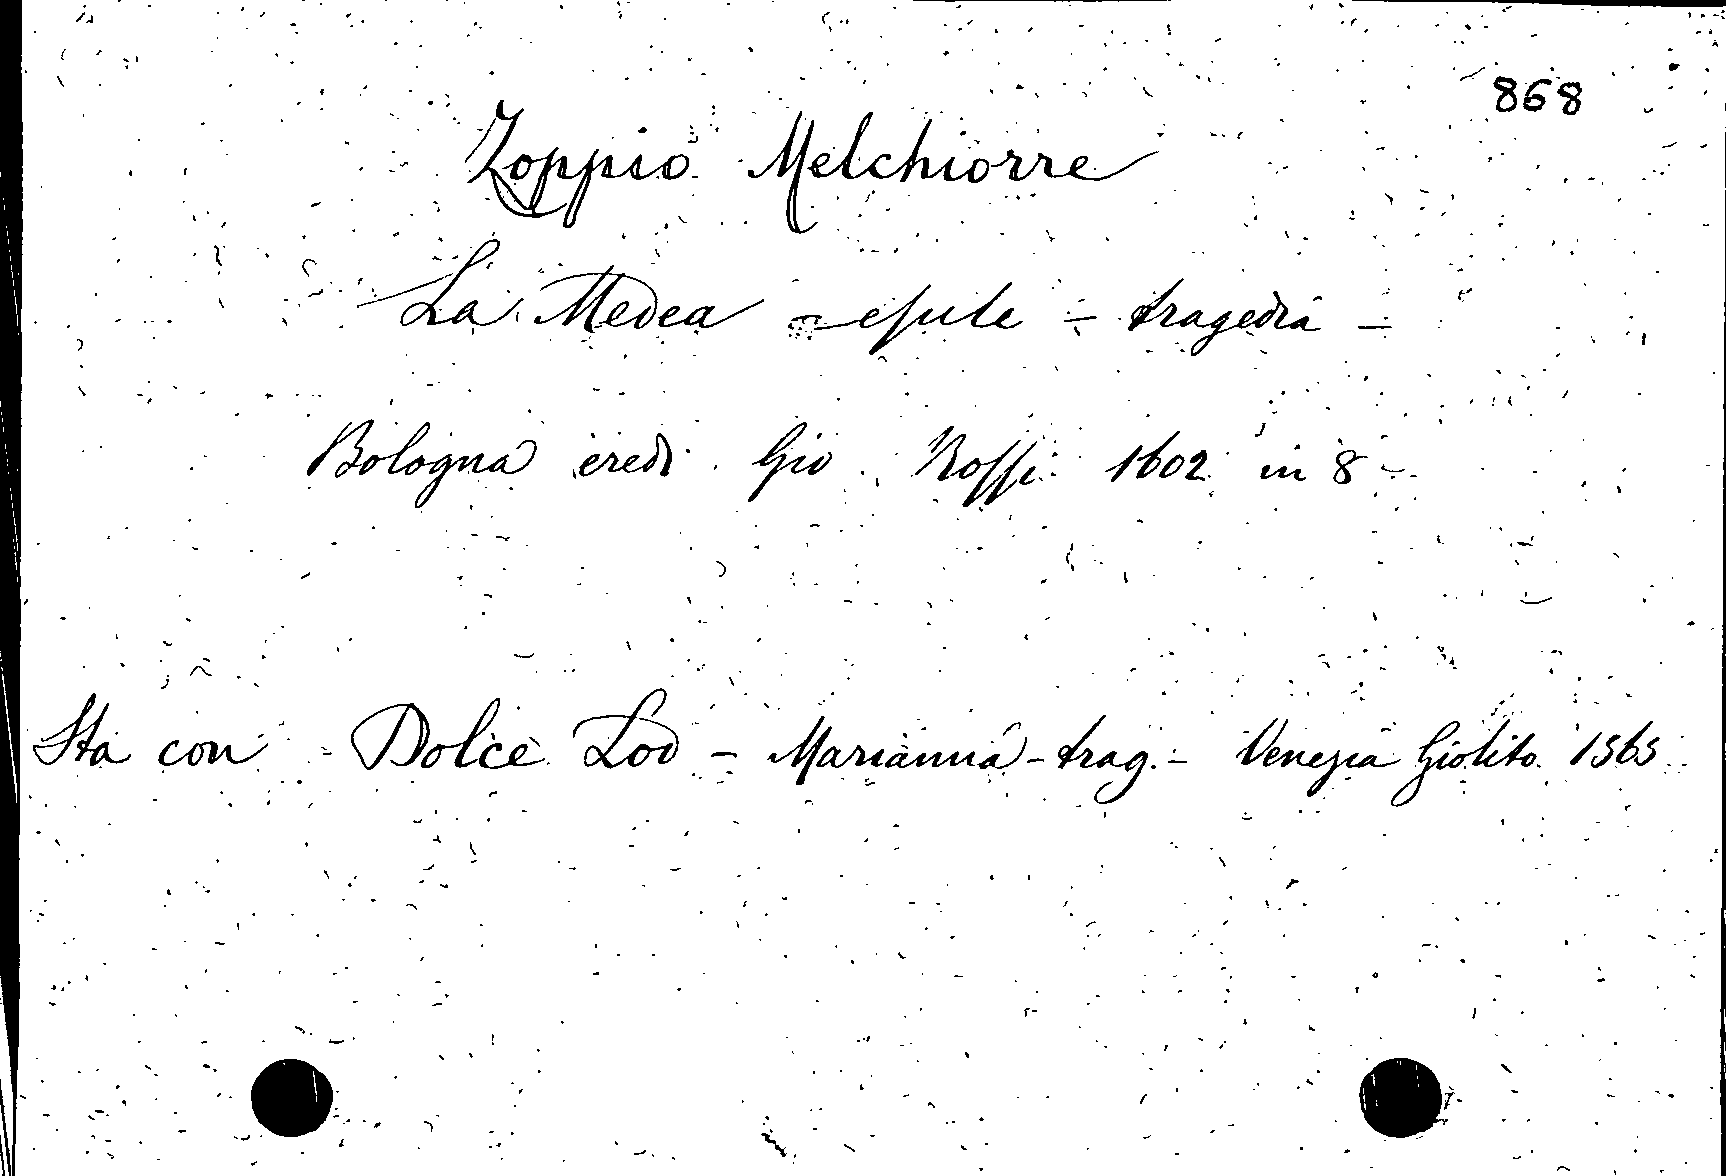 868
Zoppio Melchiorre
La Medea - esule - tragedia -
Bologna eredi Gio Rossi 1602 in 8 -
Sta con - Dolce Lod - Marianna - trag. - Venezia Giolito 1565